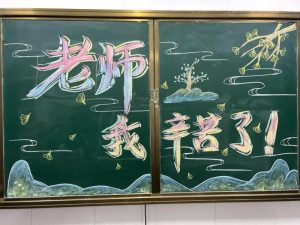 老师
我辛苦了!